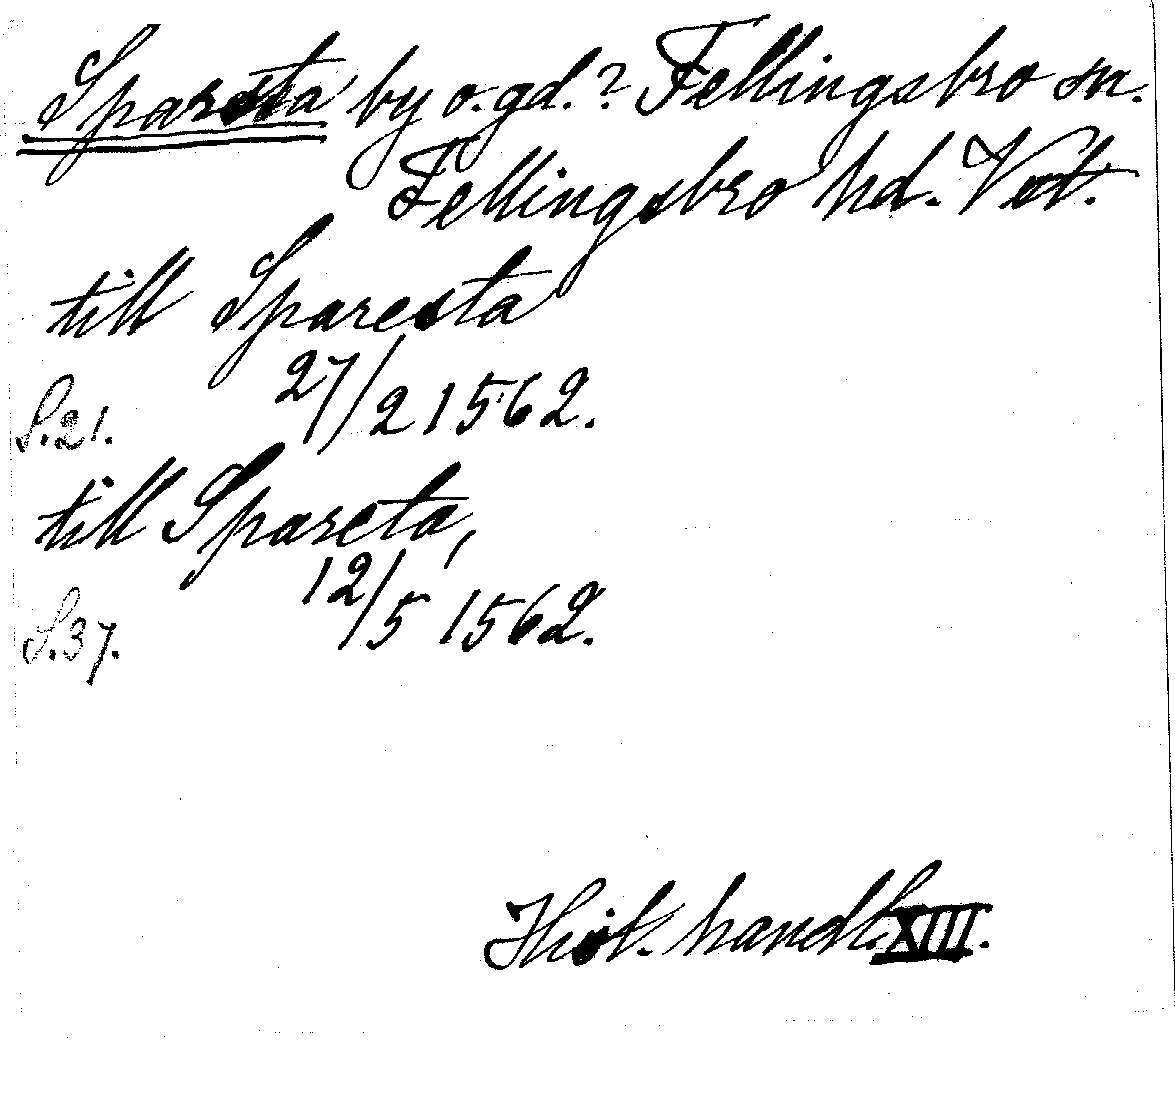 Sparsta by o. gd.? Fellingsbro sn.
Fellingsbro hd. Vstm.
till Sparesta
27/2 1562.
S. 21.
till Spareta,
12/5 1562.
S. 37.
Hist. handl. XIII.